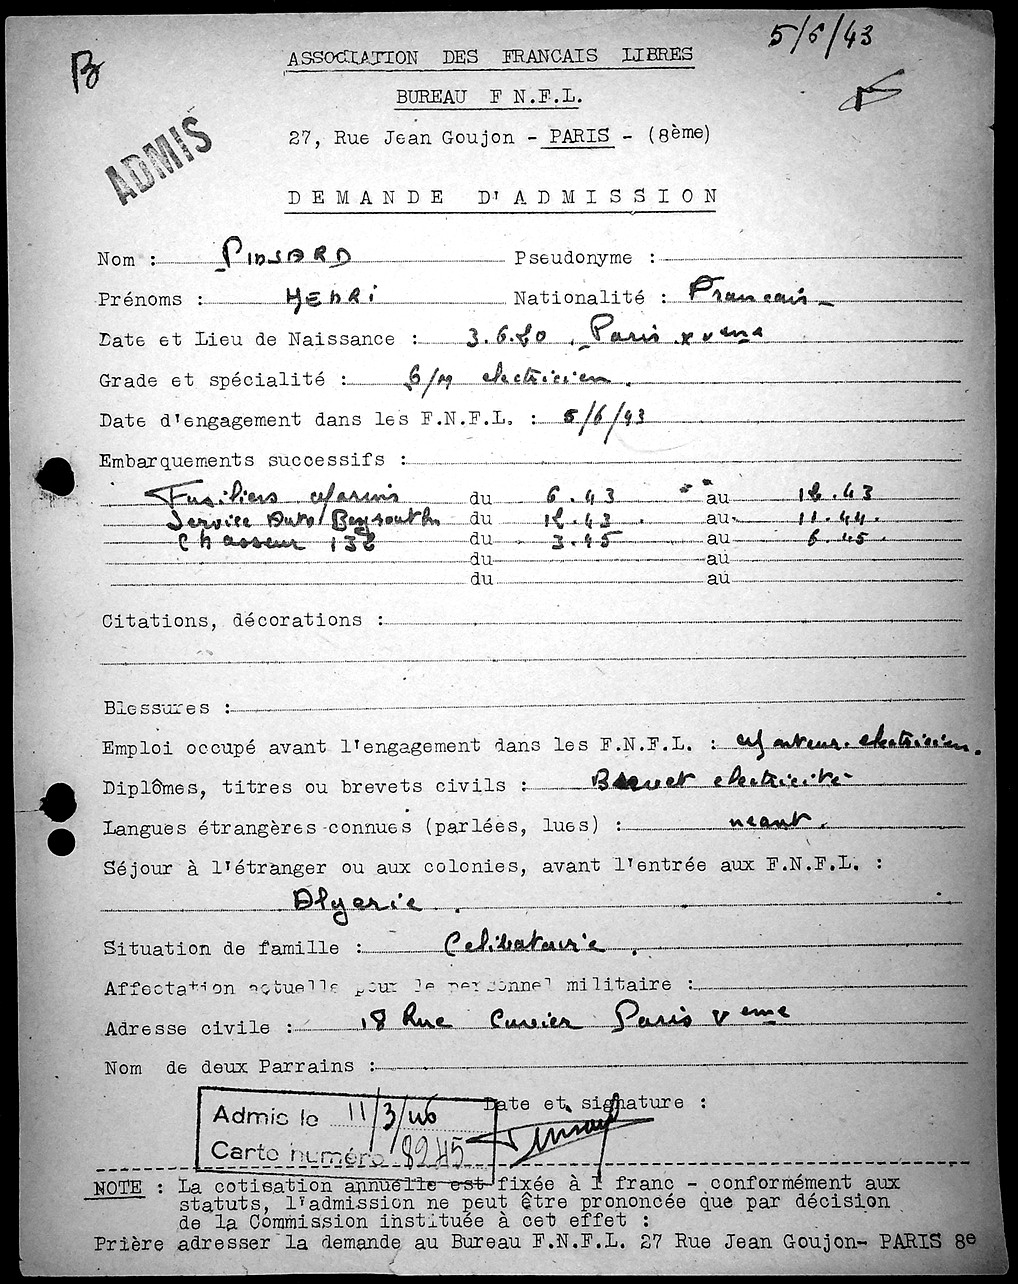 5/6/43
B
ASSOCIATION DES FRANCAIS LIBRES
BUREAU F N.F.L.
27, Rue Jean Goujon - PARIS - (8ème)
ADMIS
DEMANDE D'ADMISSION
Nom : PINSARD Pseudonyme :
Prénoms : HENRI Nationalité : Francais
Date et Lieu de Naissance : 3.6.20. Paris xveme
Grade et spécialité : S/M electricien.
Date d'engagement dans les F.N.F.L. : 5/6/43
Embarquements successifs :
Fusiliers Marins du 6.43 au 12.43
Service Auto Beyrouth du 12.43. au 11.44.
Chasseur 132 du 3.45 au 6.45.
du au
du au
Citations, décorations :
Blessures :
Emploi occupé avant l'engagement dans les F.N.F.L. : Monteur. electricien.
Diplômes, titres ou brevets civils : Brevet electricité
Langues étrangères connues (parlées, lues) : neant.
Séjour à l'étranger ou aux colonies, avant l'entrée aux F.N.F.L. :
Algerie.
Situation de famille : Celibatairie.
Affectation actuelle pour le personnel militaire :
Adresse civile : 18 Rue Cuvier Paris veme
Nom de deux Parrains :
Date et signature :
Admis le 11/3/46
Pinsard
Carte numéro 8245
NOTE : La cotisation annuelle est fixée à 1 franc - conformément aux
statuts, l'admission ne peut être prononcée que par décision
de la Commission instituée à cet effet :
Prière adresser la demande au Bureau F.N.F.L. 27 Rue Jean Goujon- PARIS 8e